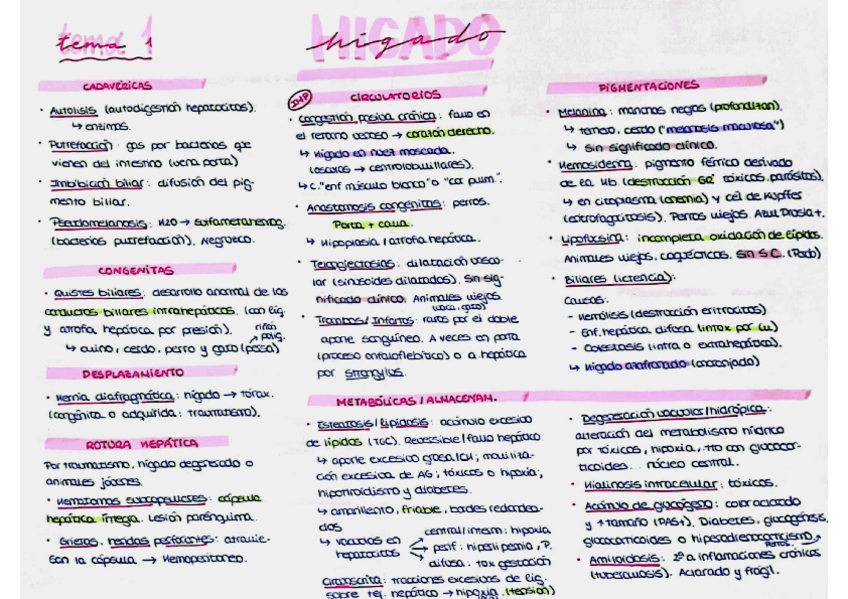 tema 1
HIGADO
higado
CADAVÉRICAS
· Autolisis (autodigestión hepatocitos).
↳ enzimas.
· Putrefacción: gas por bacterias que
vienen del intestino (vena porta)
· Imbibición biliar: difusión del pig-
mento biliar.
· Pseudomelanosis: H2O → sulfametahemog.
(bacterias putrefacción). Negruzco.
CONGÉNITAS
· Quistes biliares: desarrollo anormal de los
conductos biliares intrahepáticos. (con líq.
y atrofia hepática por presión). riñón
↳ cuino, cerdo, perro y gato (persa) poliq.
DESPLAZAMIENTO
· Hernia diafragmática: hígado → tórax.
(congénita o adquirida: traumatismo).
ROTURA HEPÁTICA
Por traumatismo, hígado degenerado o
animales jóvenes.
· Hematomas subcapsulares: cápsula
hepática íntegra. Lesión parénquima.
· Grietas, heridas perforantes: atravie-
san la cápsula → Hemoperitoneo.
IMP
CIRCULATORIOS
· Congestión pasiva crónica: fallo en
el retorno venoso → corazón derecho.
↳ Hígado en nuez moscada.
(oscuros → centrolobulillares).
↳ c. "enf músculo blanco" o "cor pulm".
· Anastomosis congénitas: perros.
Porta + cava.
↳ Hipoplasia / atrofia hepática.
· Telangiectasias: dilatación vascu-
lar (sinusoides dilatados). Sin sig-
nificado clínico. Animales viejos
(vaca, gato)
· Trombos/Infartos: raros por el doble
aporte sanguíneo. A veces en porta
(proceso onfaloflebítico) o a hepática
por strongylus.
METABÓLICAS / ALMACENAM.
· Esteatosis/Lipidosis: acúmulo excesivo
de lípidos (TGC). Reversible/fallo hepático.
↳ aporte excesivo grasa/CH; moviliza-
ción excesiva de AG; tóxicos o hipoxia;
hipotiroidismo y diabetes.
↳ amarillento, friable, bordes redondea-
dos
↳ vacuolas en hepatocitos
central/interm: hipoxia
perif: hiperlipemia, P.
difusa: tox gestación
Circunscrita: tracciones excesivas de lig.
sobre tej. hepático → hipoxia. (tensión)
PIGMENTACIONES
· Melanina: manchas negras (profundizan).
↳ ternero, cerdo ("melanosis maculosa")
↳ sin significado clínico.
· Hemosiderina: pigmento férrico derivado
de la Hb (destrucción GR tóxicos, parásitos).
↳ en citoplasma (anemia) y cel de Kupffer
(eritrofagocitosis). Perros viejos. Azul Prusia +.
· Lipofucsina: incompleta oxidación de lípidos.
Animales viejos, caquécticos. Sin S.C. (Pardo)
· Biliares (ictericia):
Causas:
- Hemólisis (destrucción eritrocitos)
- Enf. hepática difusa (intox por Cu)
- Colestasis (intra o extrahepática).
↳ Hígado azafranado (anaranjado)
· Degeneración vacuolar/hidrópica:
alteración del metabolismo hídrico
por tóxicos, hipoxia, tto con glucocor-
ticoides... núcleo central.
· Hialinosis intracelular: tóxicos.
· Acúmulo de glucógeno: color aclarado
y ↑ tamaño (PAS+). Diabetes, glucogénesis,
glucocorticoides o hiperadrenocorticismo.
perros.
· Amiloidosis: 2ª a inflamaciones crónicas
(tuberculosis). Aclarado y frágil.